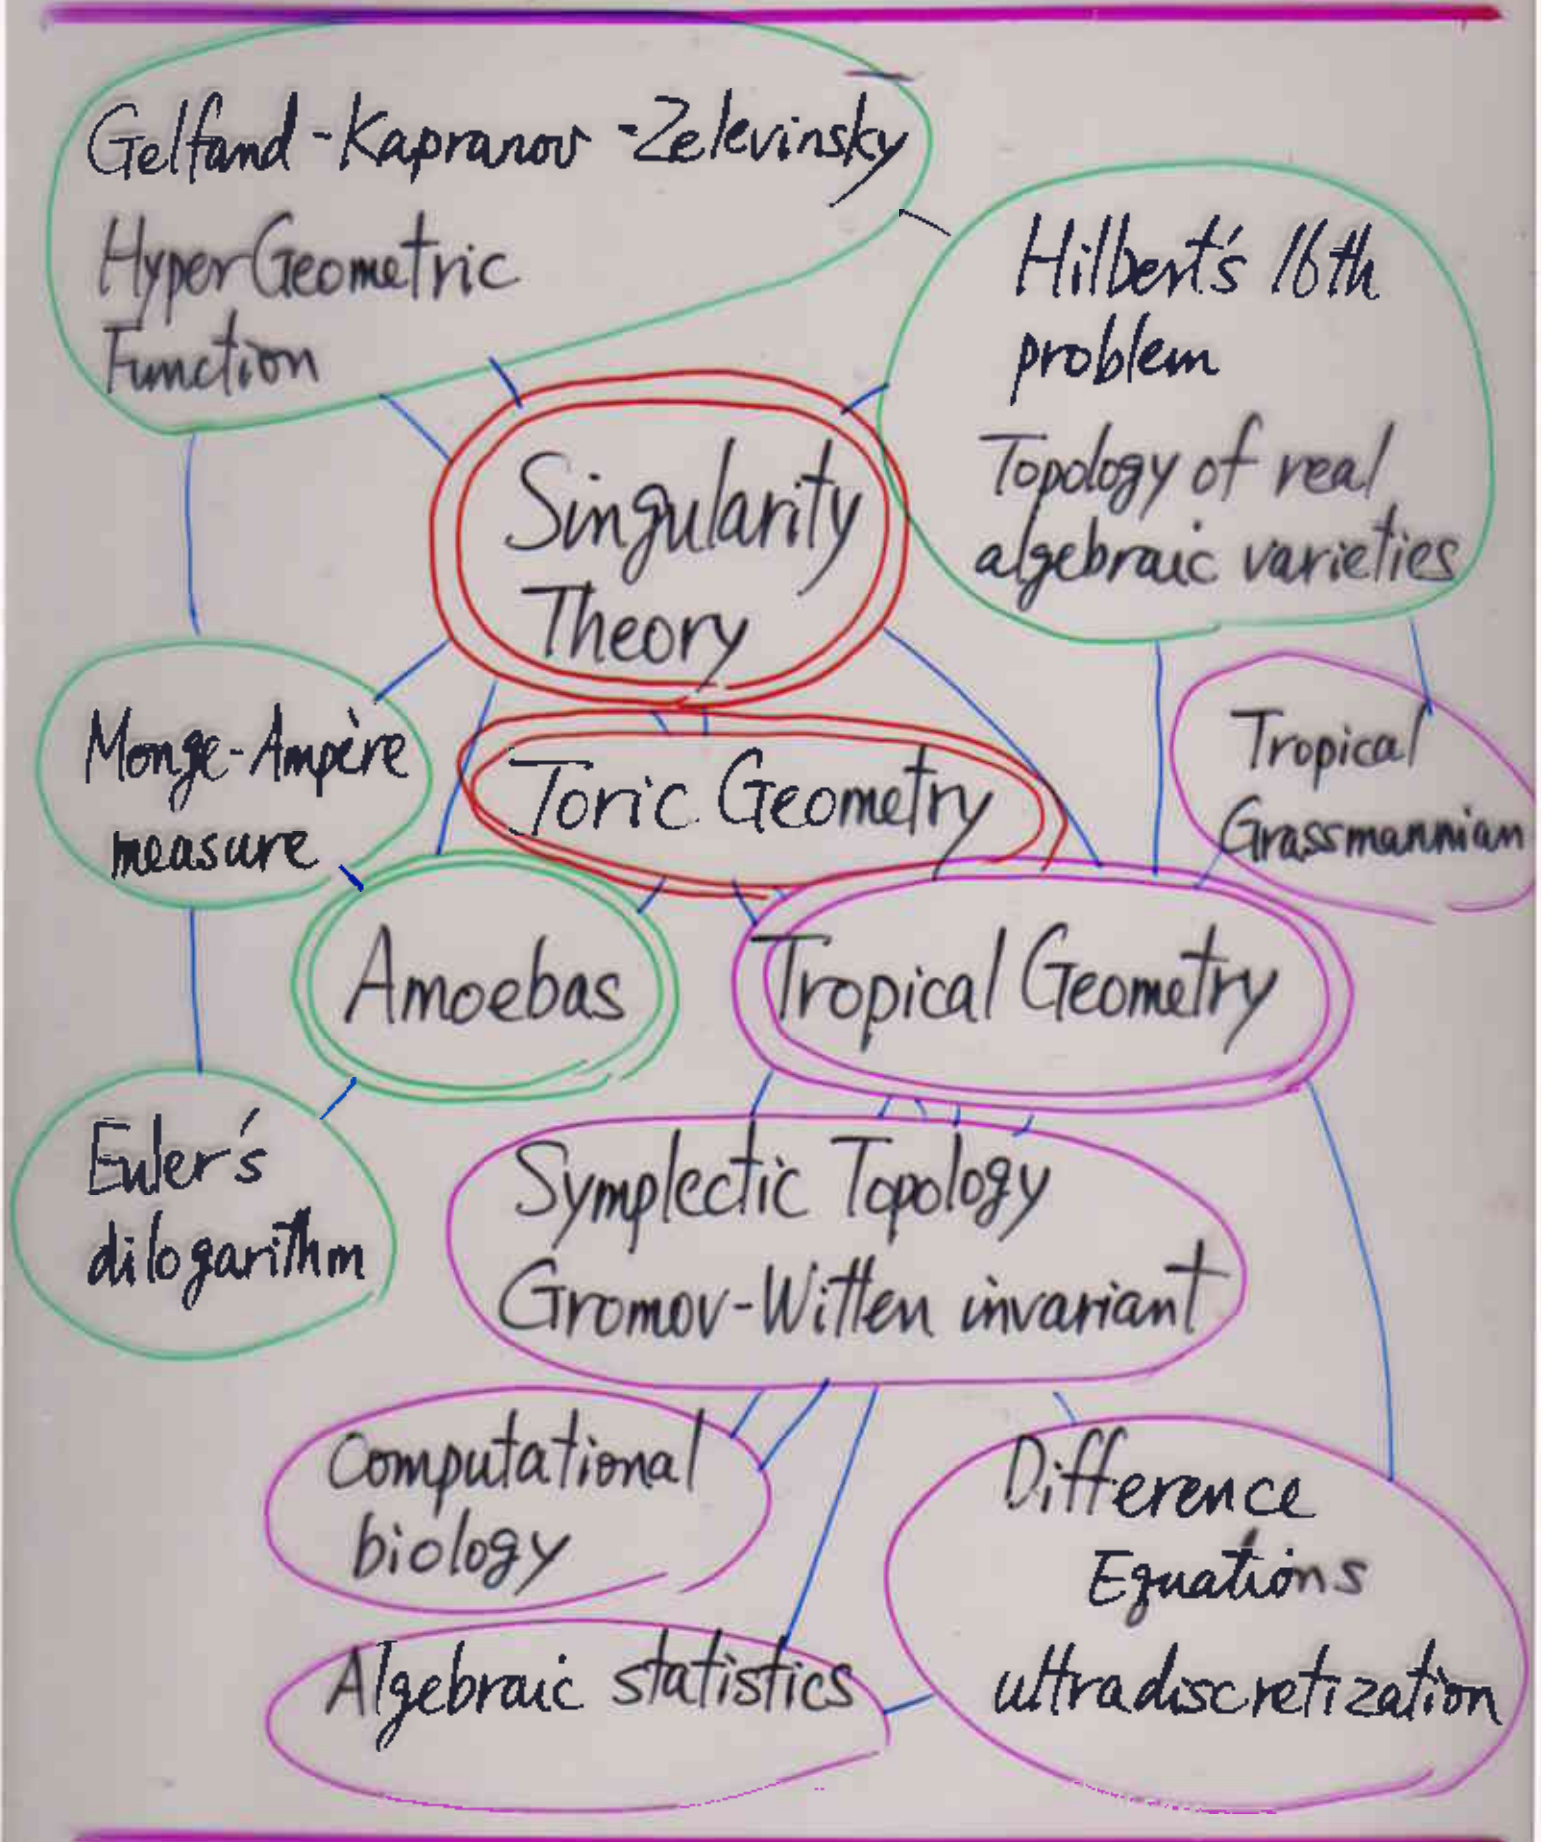 Gelfand-Kapranov-Zelevinsky
HyperGeometric
Function
Hilbert's 16th
problem
Topology of real
algebraic varieties
Singularity
Theory
Monge-Ampère
measure
Toric Geometry
Tropical
Grassmannian
Amoebas
Tropical Geometry
Euler's
dilogarithm
Symplectic Topology
Gromov-Witten invariant
Computational
biology
Difference
Equations
ultradiscretization
Algebraic statistics